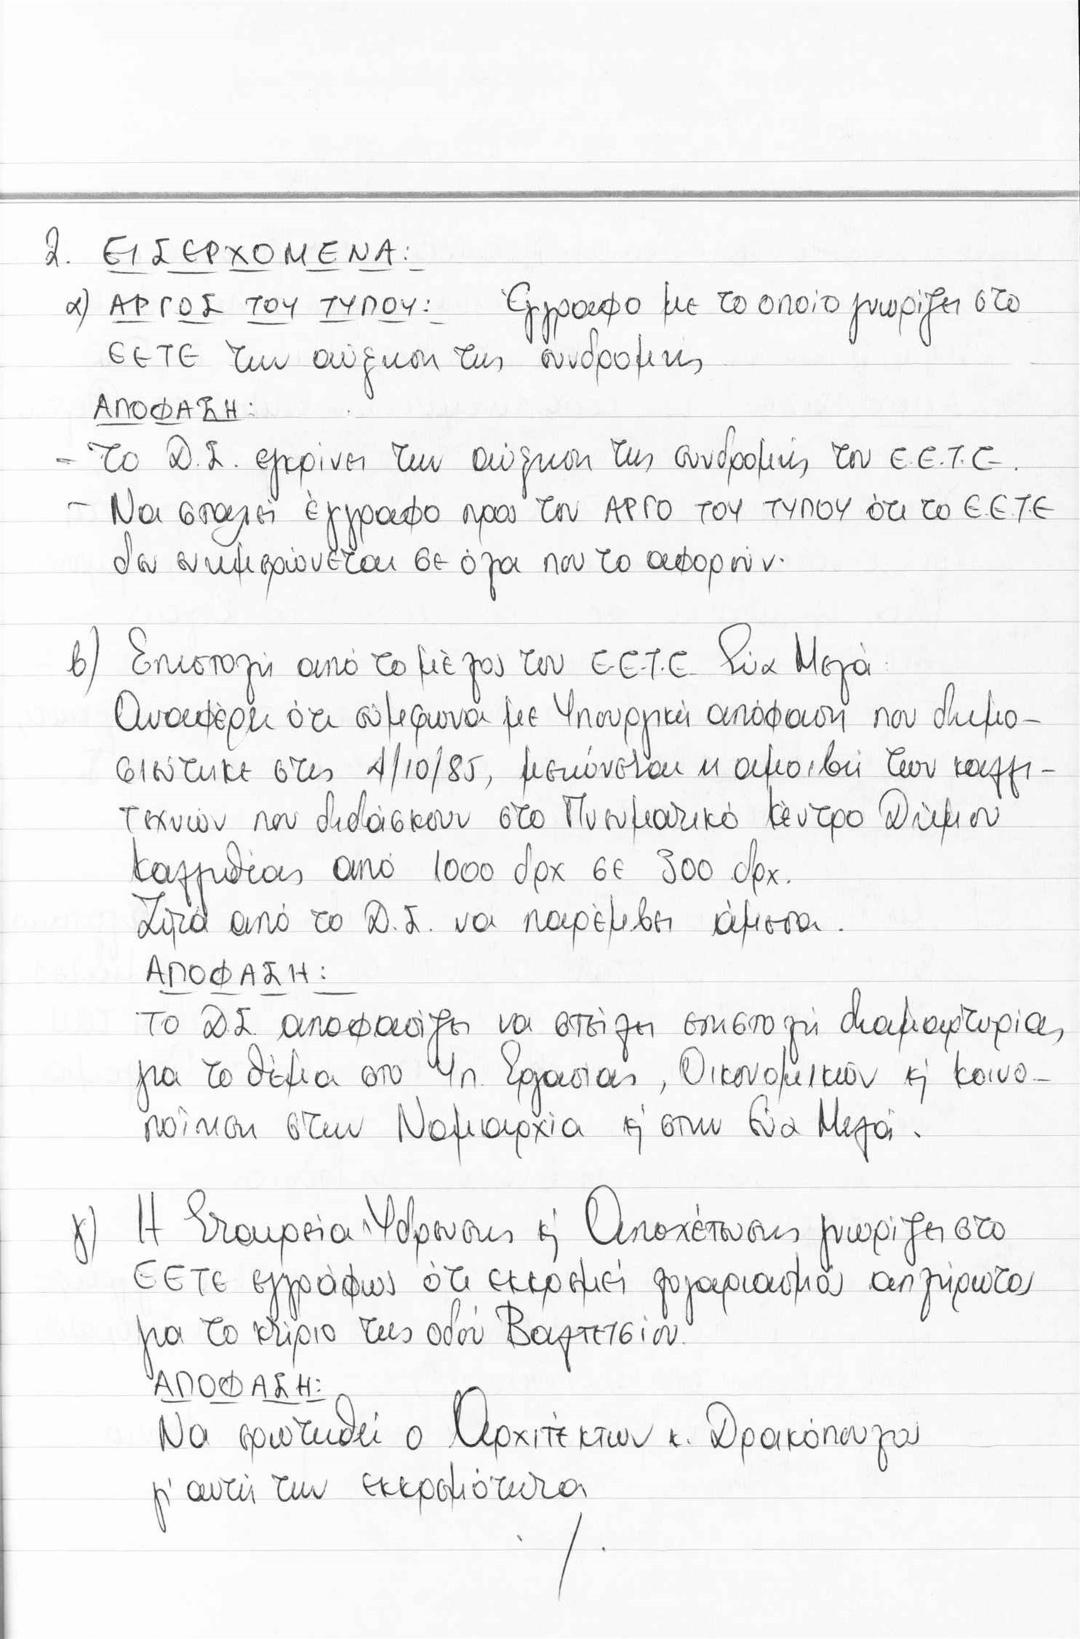 2. ΕΙΣΕΡΧΟΜΕΝΑ:
α) ΑΡΓΟΣ ΤΟΥ ΤΥΠΟΥ: Έγγραφο με το οποίο γνωρίζει στο
ΕΕΤΕ την αύξηση της συνδρομής
ΑΠΟΦΑΣΗ:
- Το Δ.Σ. εγκρίνει την αύξηση της συνδρομής του Ε.Ε.Τ.Ε.
- Να σταλεί έγγραφο προς τον ΑΡΓΟ ΤΟΥ ΤΥΠΟΥ ότι το Ε.Ε.Τ.Ε
δεν ενημερώνεται σε όλα που το αφορούν.
β) Επιστολή από το μέλος του Ε.Ε.Τ.Ε Εύα Μελά:
Αναφέρει ότι σύμφωνα με Υπουργική απόφαση που δημο-
σιεύτηκε στις 4/10/85, μειώνεται η αμοιβή των καλλι-
τεχνών που διδάσκουν στο Πνευματικό Κέντρο Δήμου
Καλλιθέας από 1000 δρχ σε 300 δρχ.
Ζητά από το Δ.Σ. να παρέμβει άμεσα.
ΑΠΟΦΑΣΗ:
Το ΔΣ. αποφασίζει να στείλει επιστολή διαμαρτυρίας
για το θέμα στο Υπ. Εργασίας, Οικονομικών κ' κοινο-
ποίηση στην Νομαρχία κ' στην Εύα Μελά.
γ) Η Εταιρεία Ύδρευσης κ' Αποχέτευσης γνωρίζει στο
ΕΕΤΕ εγγράφως ότι εκκρεμεί λογαριασμός απλήρωτος
για το κτίριο της οδού Βαλτετσίου.
ΑΠΟΦΑΣΗ:
Να ερωτηθεί ο Αρχιτέκτων κ. Δρακόπουλος
γι' αυτή την εκκρεμότητα
./.